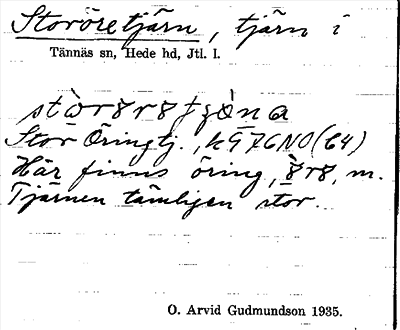 Storöretjärn, tjärn i
Tännäs sn, Hede hd, Jtl. l.
Stor Öringtj., k G76NO(64)
Här finns öring, m.
Tjärnen tämligen stor.
O. Arvid Gudmundson 1935.